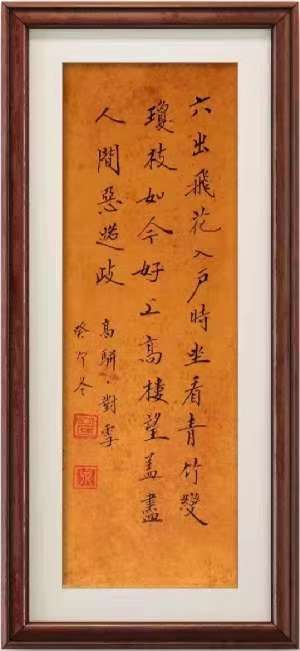 六出飛花入戶時坐看青竹變
瓊枝如今好上高樓望蓋盡
人間惡路歧
高駢·對雪
癸卯冬